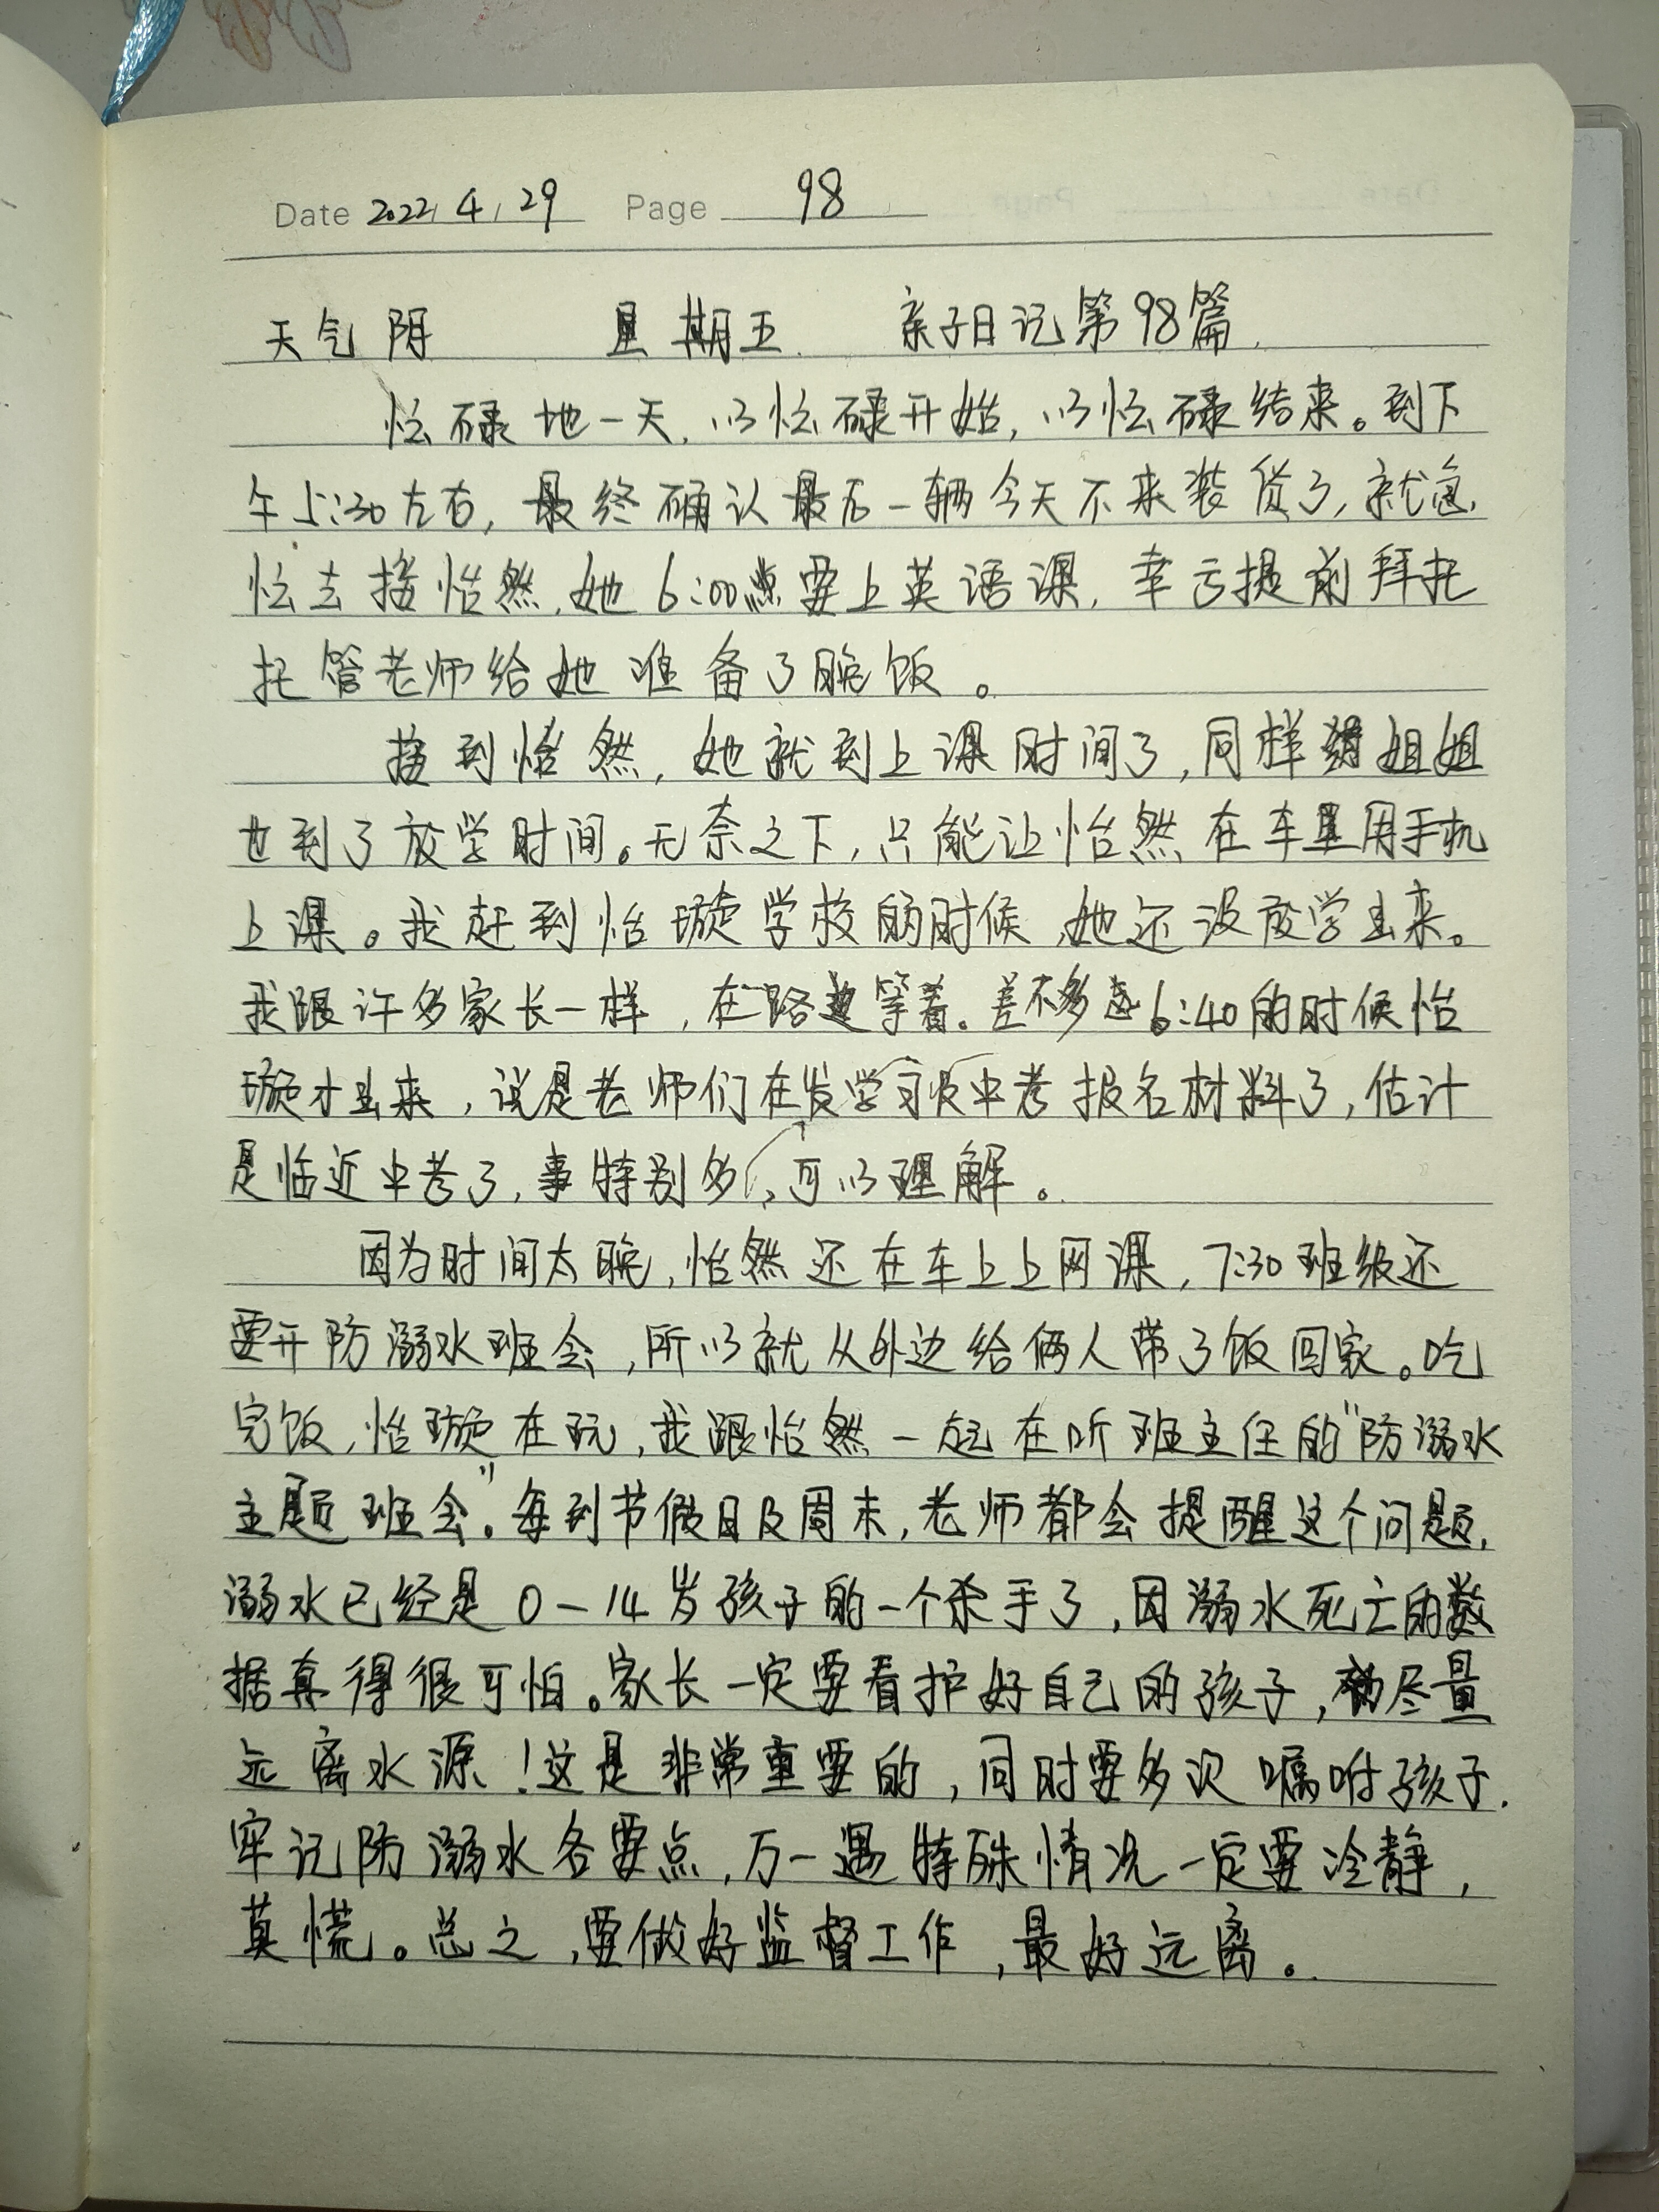 Date 2022.4.29 Page 98
天气阴 星期五. 亲子日记第98篇.
忙碌地一天,以忙碌开始,以忙碌结束。到下
午5:30左右,最终确认最后一辆今天不来装货了,就急
忙去接怡然,她6:00点要上英语课,幸亏提前拜托
托管老师给她准备了晚饭。
接到怡然,她就到上课时间了,同样姐姐
也到了放学时间。无奈之下,只能让怡然在车里用手机
上课。我赶到怡璇学校的时候,她还没放学出来。
我跟许多家长一样,在路边等着。差不多6:40的时候怡
璇才出来,说是老师们在发学习及中考报名材料了,估计
是临近中考了,事特别多,可以理解。
因为时间太晚,怡然还在车上上网课,7:30班级还
要开防溺水班会,所以就从外边给俩人带了饭回家。吃
完饭,怡璇在玩,我跟怡然一起在听班主任的"防溺水
主题班会"。每到节假日及周末,老师都会提醒这个问题,
溺水已经是0-14岁孩子的一个杀手了,因溺水死亡的数
据真得很可怕。家长一定要看护好自己的孩子,尽量
远离水源!这是非常重要的,同时要多次嘱咐孩子.
牢记防溺水各要点,万一遇特殊情况一定要冷静,
莫慌。总之,要做好监督工作,最好远离。